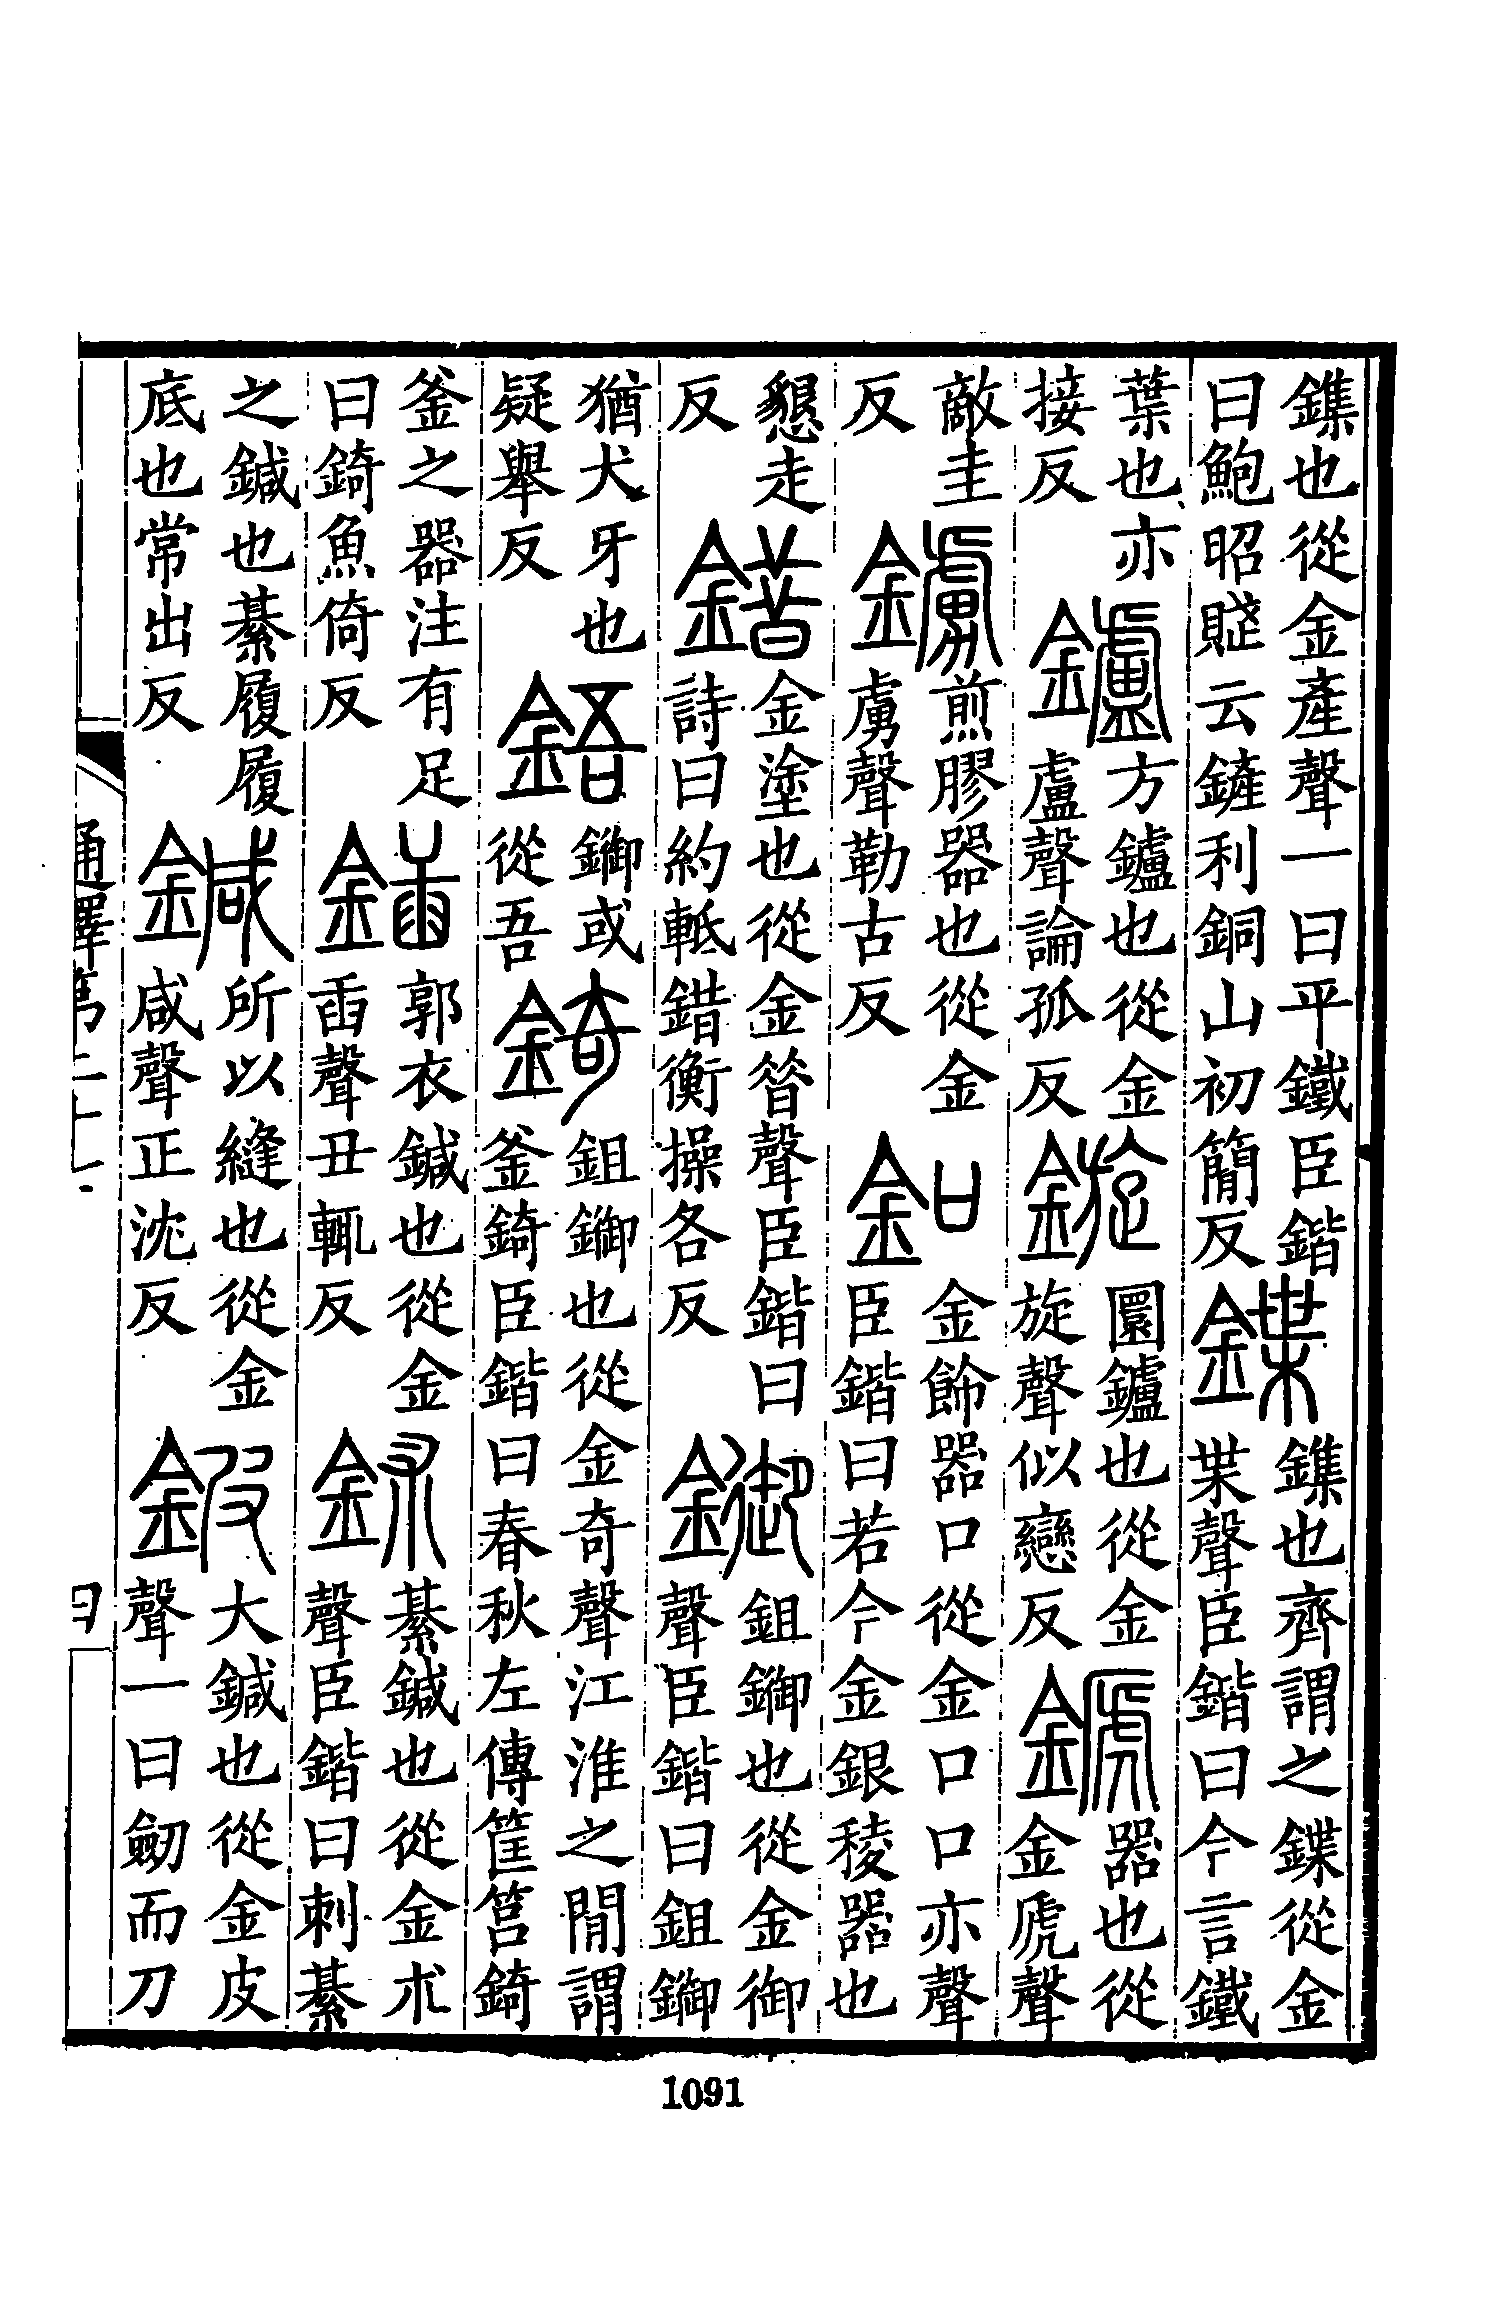 鏶也從金產聲一曰平鐵臣鍇
曰鮑昭賦云鏟利銅山初簡反
鍱
鏶也齊謂之鍱從金
枼聲臣鍇曰今言鐵
葉也亦
接反
鑪
方鑪也從金
盧聲論孤反
鏇
圜鑪也從金
旋聲似戀反
鐻
器也從
金虒聲
敵圭
反
鐪
煎膠器也從金
虜聲勒古反
釦
金飾器口從金口口亦聲
臣鍇曰若今金銀稜器也
懇走
反
錯
金塗也從金簮聲臣鍇曰
詩曰約軧錯衡操各反
鋙
鉏鋙也從金御
聲臣鍇曰鉏鋙
猶犬牙也
疑舉反
鋙
鋙或
從吾
錡
鉏鋙也從金奇聲江淮之閒謂
釜錡臣鍇曰春秋左傳筐筥錡
釜之器注有足
曰錡魚倚反
鍤
郭衣鍼也從金
臿聲丑輒反
鉥
綦鍼也從金朮
聲臣鍇曰刺綦
之鍼也綦履履
底也常出反
鍼
所以縫也從金
咸聲正沈反
鈹
大鍼也從金皮
聲一曰劒而刀
通釋第二十七
1091